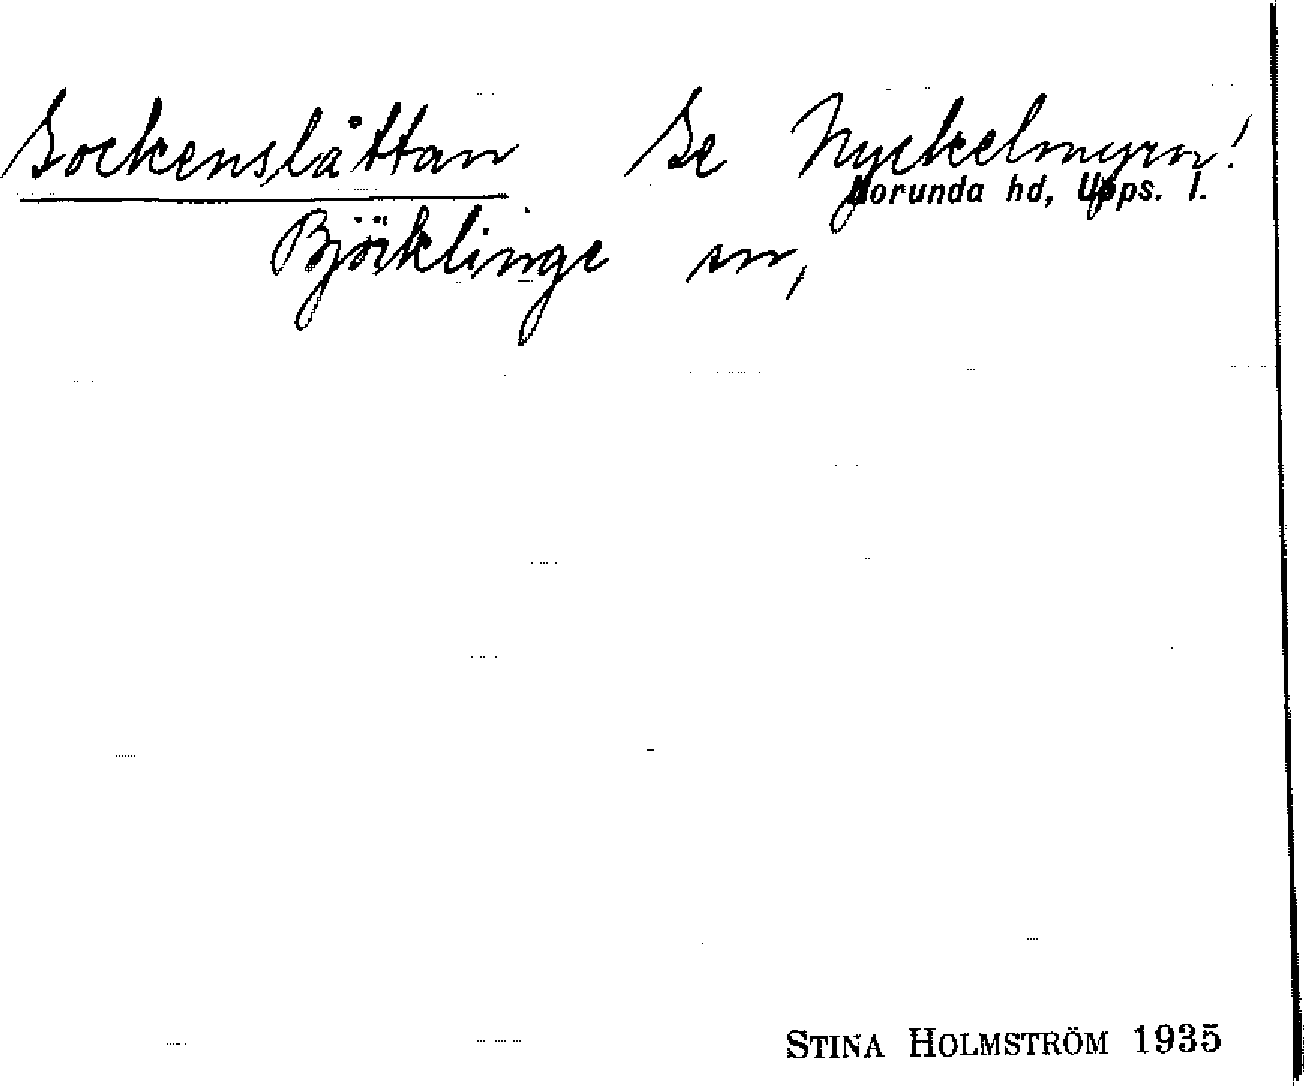 Sockenslåttan Se Nyckelmyra!
Norunda hd, Upps. l.
Björklinge sn,
STINA HOLMSTRÖM 1935